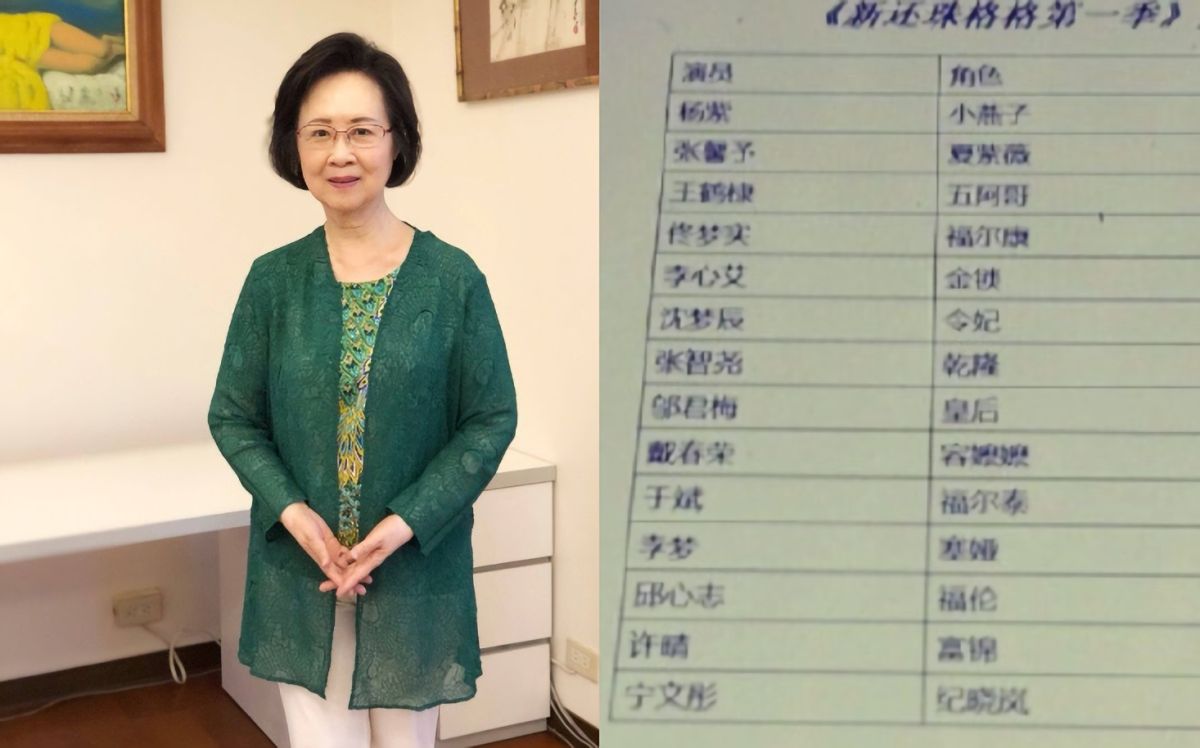 《新还珠格格第一季》
演员 角色
杨紫 小燕子
张馨予 夏紫薇
王鹤棣 五阿哥
佟梦实 福尔康
李心艾 金锁
沈梦辰 令妃
张智尧 乾隆
邬君梅 皇后
戴春荣 容嬷嬷
于斌 福尔泰
李梦 塞娅
邱心志 福伦
许晴 富锦
宁文彤 纪晓岚